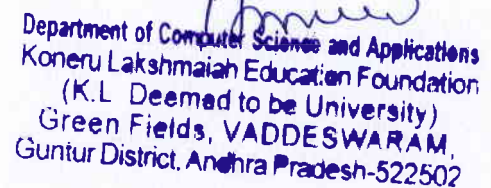 Department of Computer Science and Applications
Koneru Lakshmaiah Education Foundation
(K.L Deemed to be University)
Green Fields, VADDESWARAM,
Guntur District, Andhra Pradesh-522502